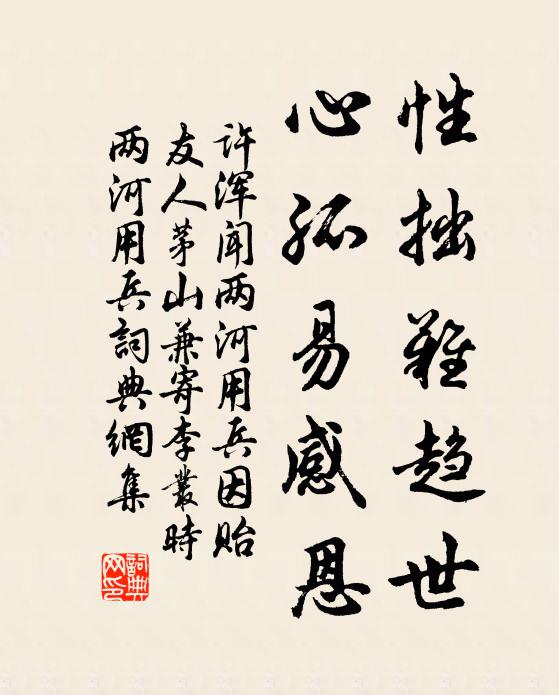 性拙难趋世
心孤易感恩
许浑闻两河用兵因贻
友人茅山兼寄李丛时
两河用兵詞典網集
詞典
网印